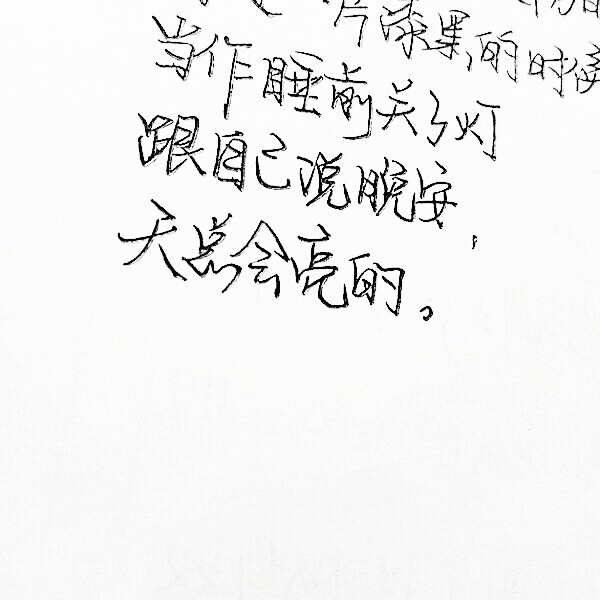 一片漆黑的时候
当作睡前关了灯
跟自己说晚安，
天总会亮的。